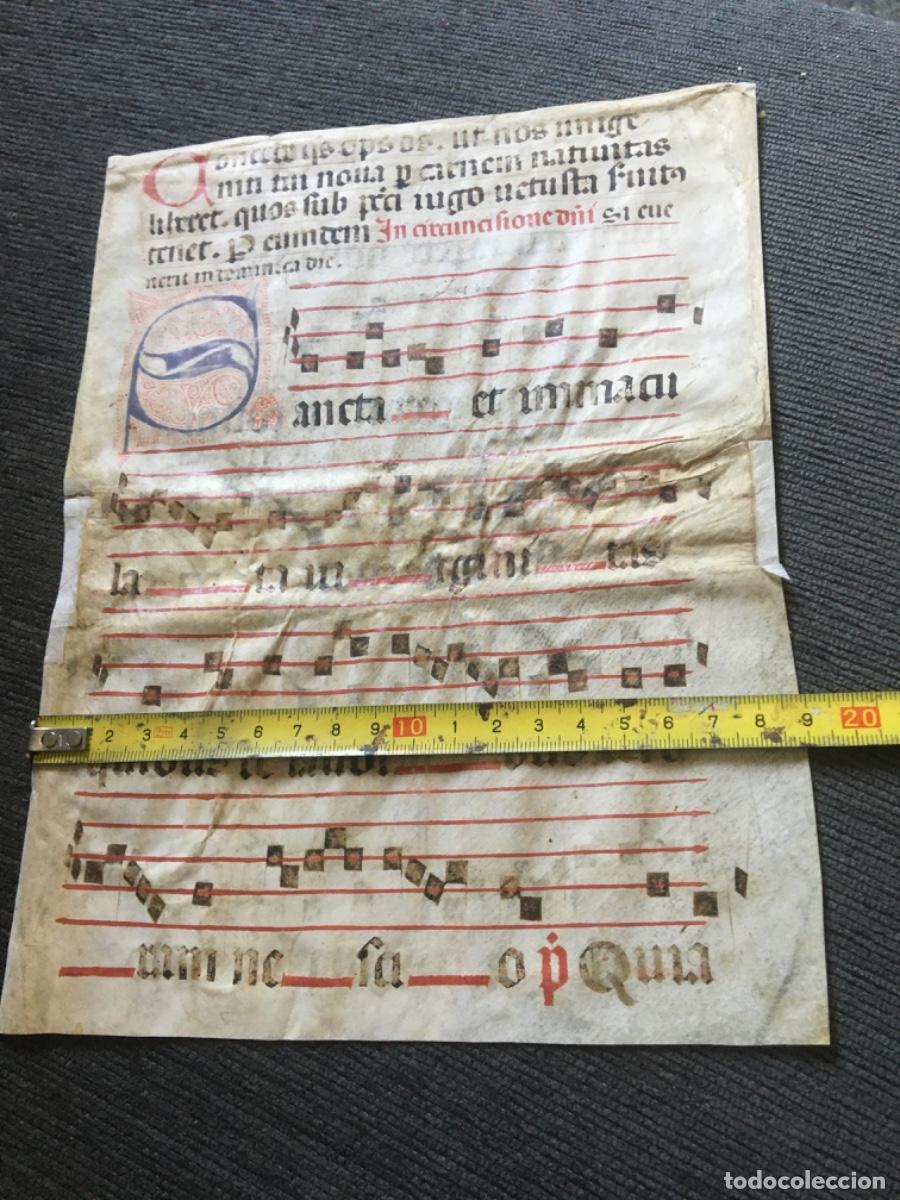 Concede q̄s op̄s ds. ut nos unige
niti tui noua p carnem natiuitas
liberet. quos sub p̄cti iugo uetusta seruit⁹
tenet. P eundem In circuncisione dn̄i Si eue
nerit in dominica die.
Sancta et immacu
la ta ui rgini tas
qui
umi ne su o p̄ Quia
2 3 4 5 6 7 8 9 10 1 2 3 4 5 6 7 8 9 20
todocoleccion